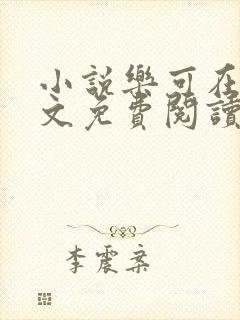 小說樂可在
文免費閱讀
李震案